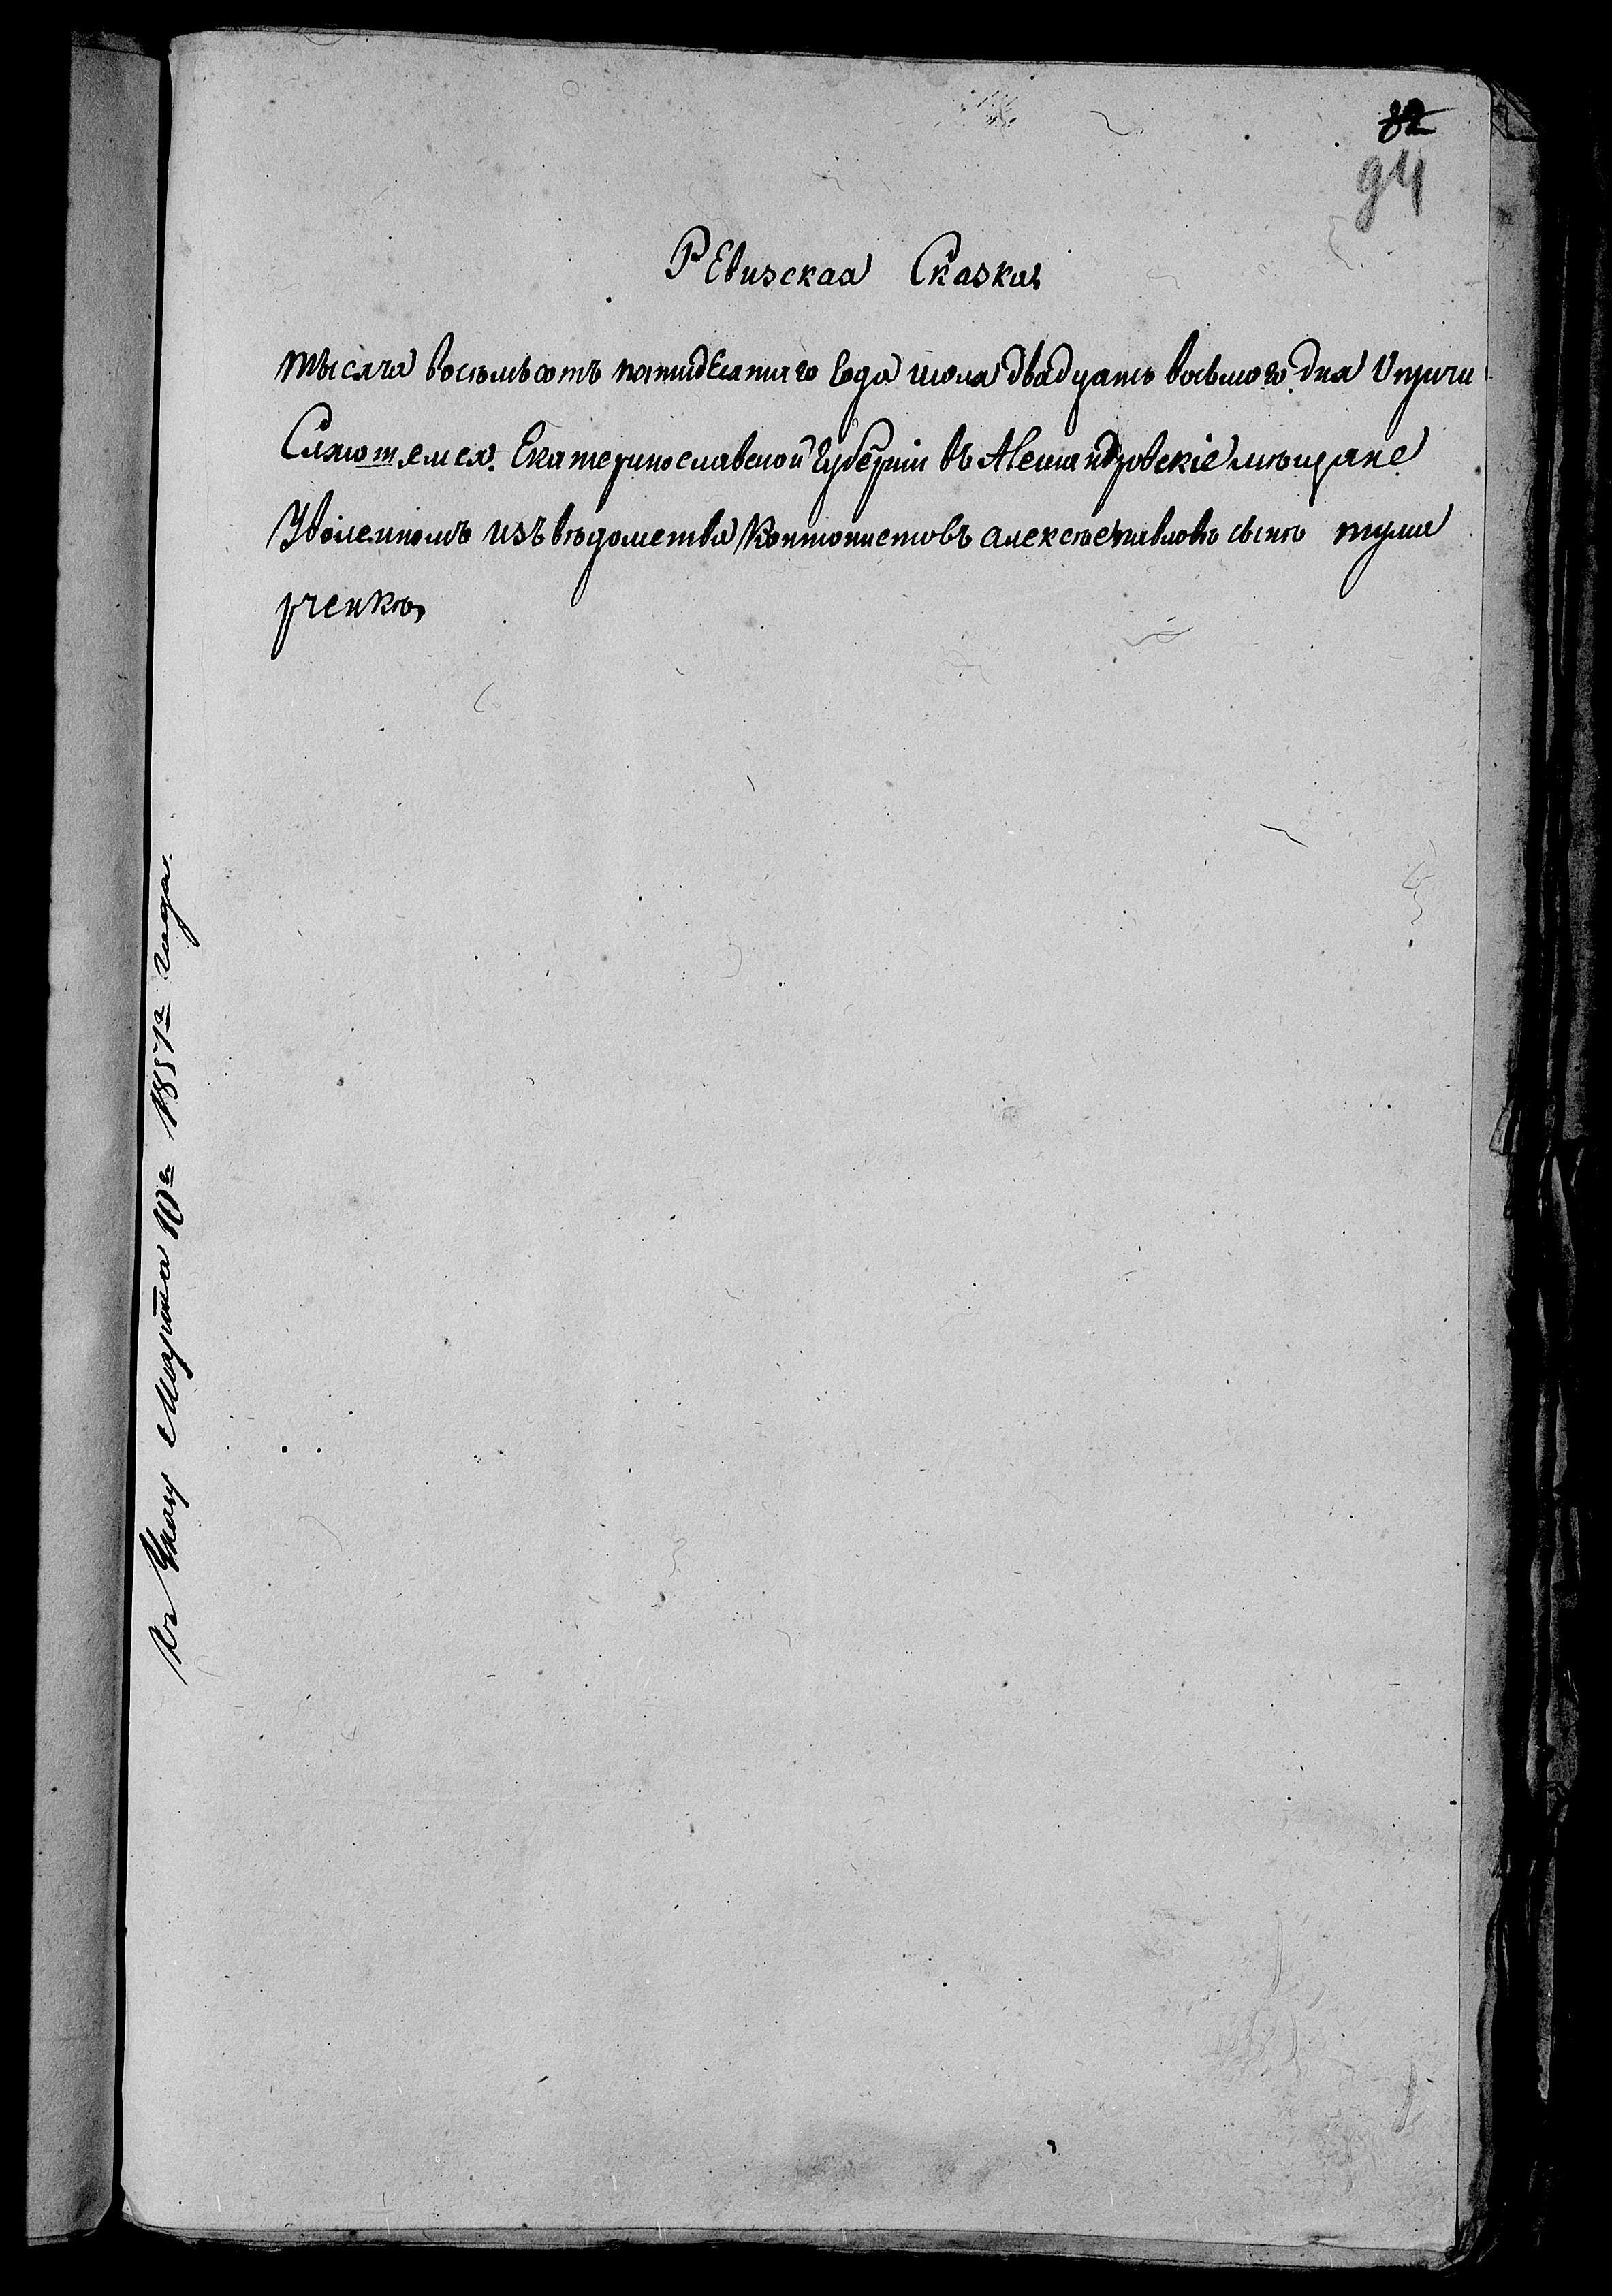 82
94
Ревизская Сказка
тысяча восемьсотъ пятидесятаго года июля двадцать восьмого дня О причи
Сляютемся Екатеринославской Губерніи въ Алеѯандровскіе мѣщане
Уволенномъ изъ вѣдомства Контонистовъ алексѣе павловѣ сынѣ
рченкѣ
Къ Указу Марта 10го 1851го года.